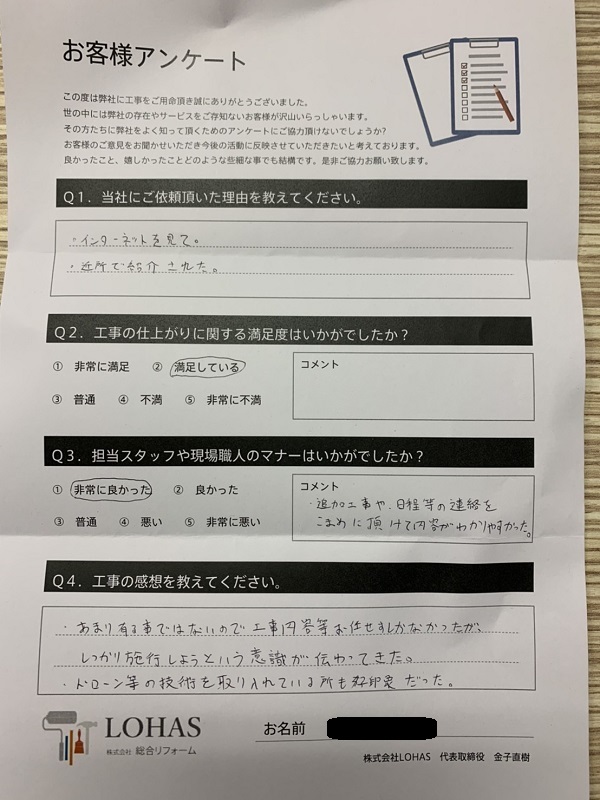 お客様アンケート
この度は弊社に工事をご用命頂き誠にありがとうございました。
世の中には弊社の存在やサービスをご存知ないお客様が沢山いらっしゃいます。
その方たちに弊社をよく知って頂くためのアンケートにご協力頂けないでしょうか?
お客様のご意見をお聞かせいただき今後の活動に反映させていただきたいと考えております。
良かったこと、嬉しかったことどのような些細な事でも結構です。是非ご協力お願い致します。
Q1. 当社にご依頼頂いた理由を教えてください。
・インターネットを見て。
・近所で紹介された。
Q2. 工事の仕上がりに関する満足度はいかがでしたか?
① 非常に満足 ② 満足している
③ 普通 ④ 不満 ⑤ 非常に不満
コメント
Q3. 担当スタッフや現場職人のマナーはいかがでしたか?
① 非常に良かった ② 良かった
③ 普通 ④ 悪い ⑤ 非常に悪い
コメント
・追加工事や、日程等の連絡を
こまめに頂けて内容がわかりやすかった。
Q4. 工事の感想を教えてください。
・あまり有る事ではないので工事内容等お任せするしかなかったが、
しっかり施行しようという意識が伝わってきた。
・ドローン等の技術を取り入れている所も好印象だった。
LOHAS
株式会社 総合リフォーム
お名前
株式会社LOHAS 代表取締役 金子直樹